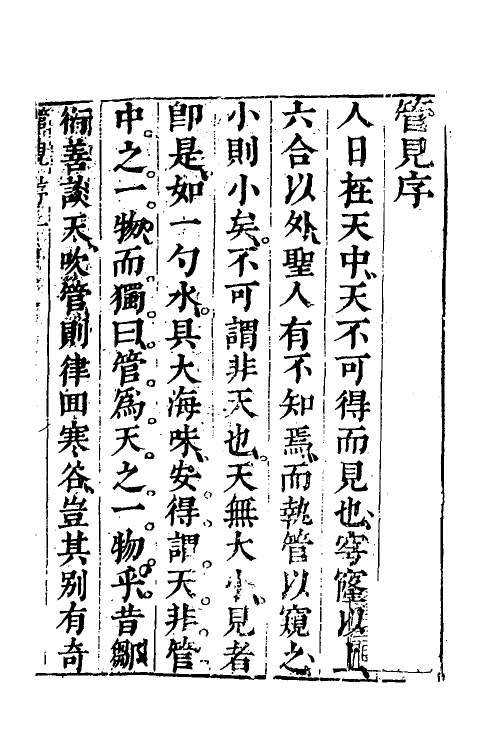 管見序
人日在天中、天不可得而見也、穹窿以上、
六合以外、聖人有不知焉、而執管以窺之、
小則小矣。不可謂非天也、天無大小、見者
卽是、如一勺水、具大海味、安得謂。天。非。管。
中。之。一。物、而。獨。曰。管。爲。天。之。一。物。乎。昔鄒
衍善談天、吹管則律回寒谷、豈其别有奇
管見序